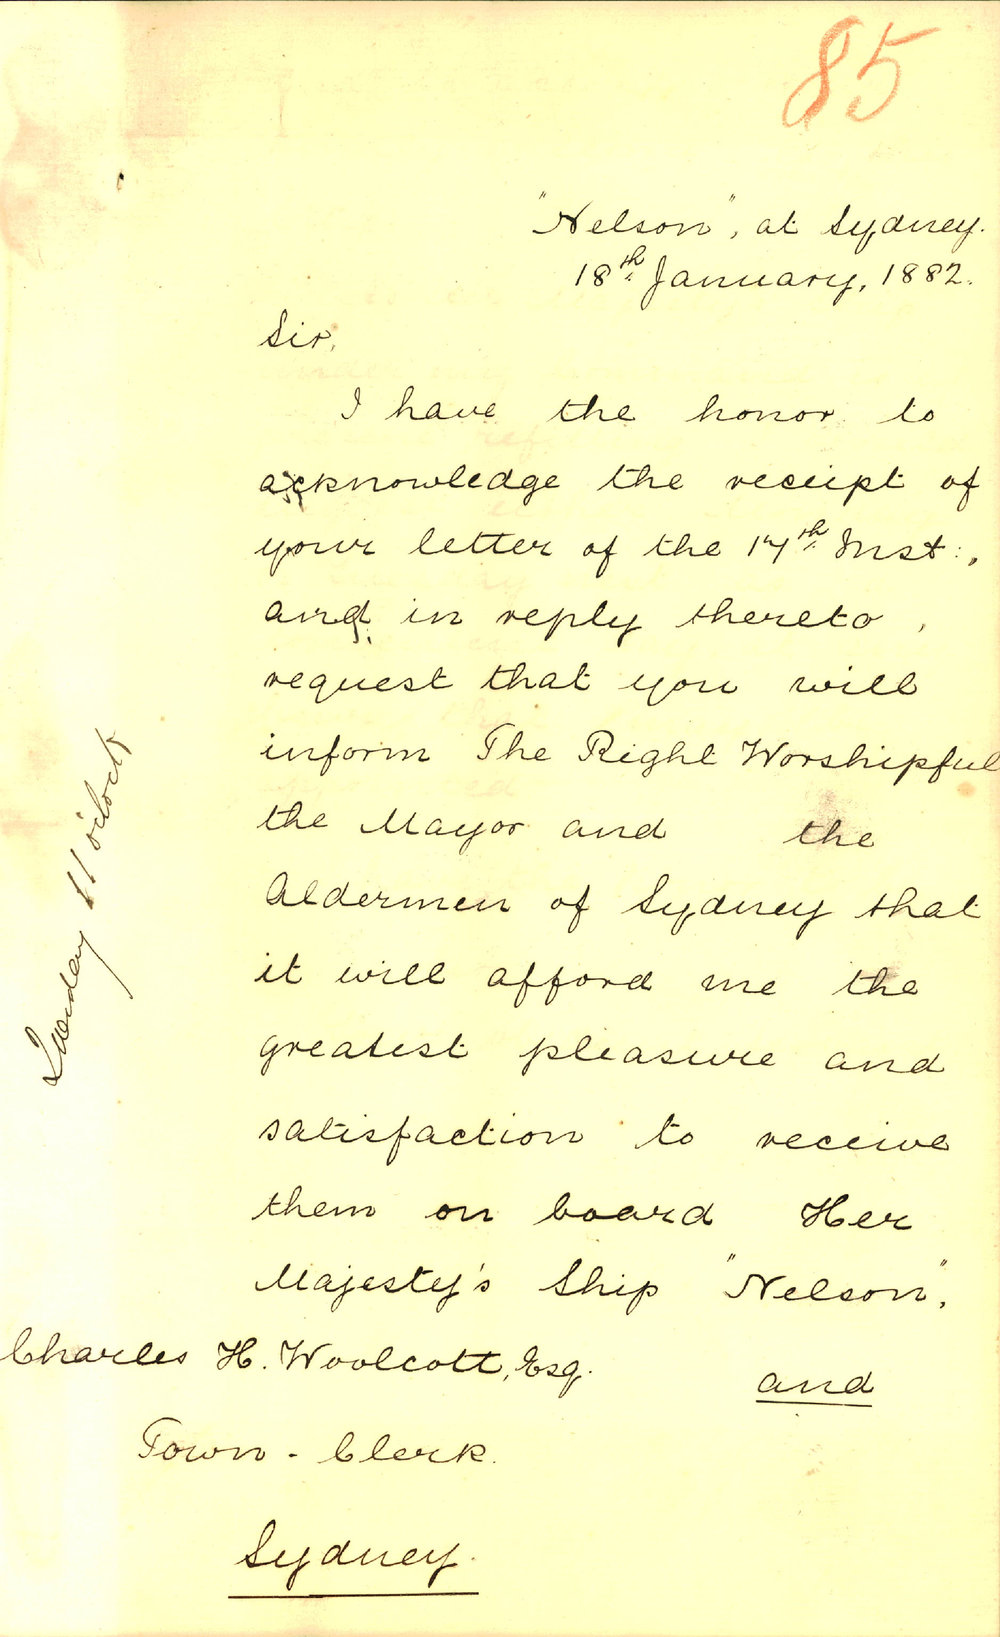 85
"Nelson", at Sydney.
18th January, 1882.
Sir,
I have the honor to
acknowledge the receipt of
your letter of the 17th Inst:,
and, in reply thereto,
request that you will
inform The Right Worshipful
the Mayor and the
Aldermen of Sydney that
it will afford me the
greatest pleasure and
satisfaction to receive
them on board Her
Majesty's Ship "Nelson",
and
Charles H. Woolcott, Esq.
Town-Clerk.
Sydney.
Tuesday 11 o'clock